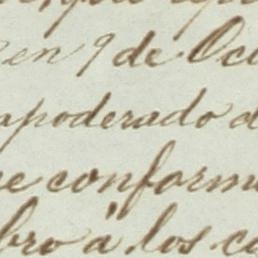 en 9 de Oc
apoderado d
e conform
bro a los ca